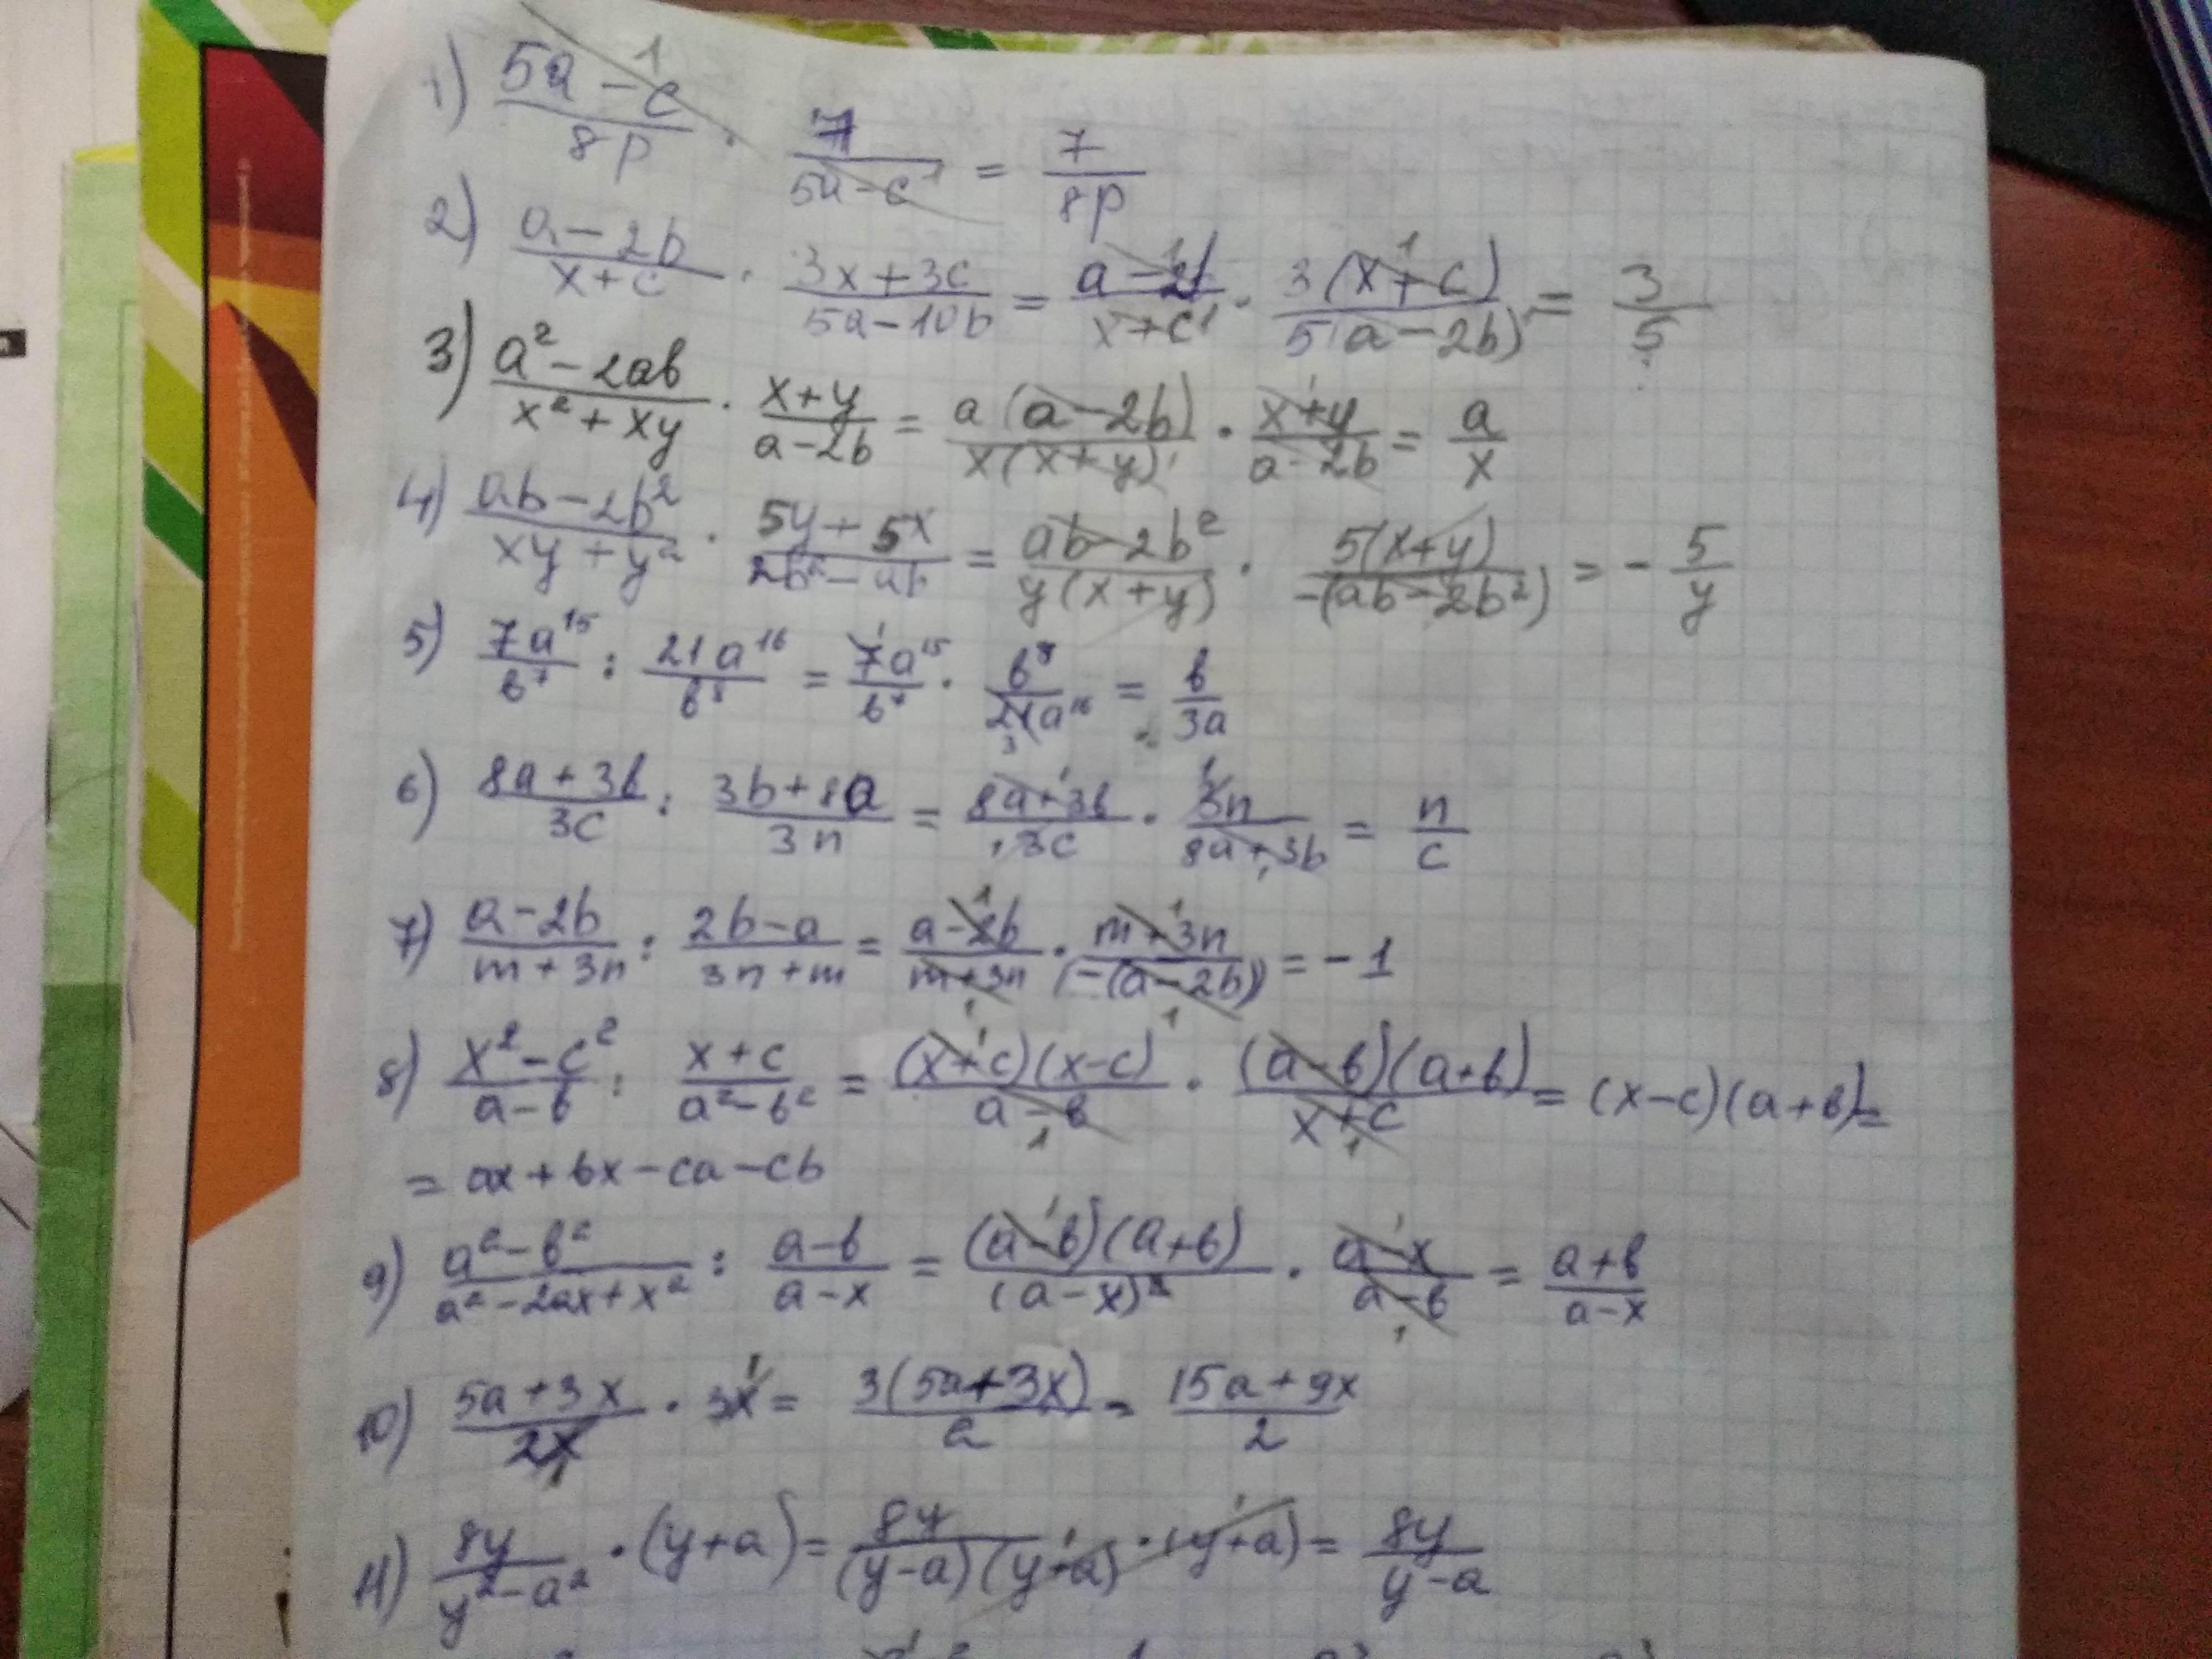 1) (5a-c)/(8p) · 7/(5a-c) = 7/(8p)
2) (a-2b)/(x+c) · (3x+3c)/(5a-10b) = (a-2b)/(x+c) · 3(x+c)/5(a-2b) = 3/5
3) (a²-2ab)/(x²+xy) · (x+y)/(a-2b) = a(a-2b)/x(x+y) · (x+y)/(a-2b) = a/x
4) (ab-2b²)/(xy+y²) · (5y+5x)/(2b²-ab) = (ab-2b²)/y(x+y) · 5(x+y)/-(ab-2b²) = -5/y
5) 7a¹⁵/b⁷ : 21a¹⁶/b⁸ = 7a¹⁵/b⁷ · b⁸/21a¹⁶ = b/3a
6) (8a+3b)/3c : (3b+8a)/3n = (8a+3b)/3c · 3n/(8a+3b) = n/c
7) (a-2b)/(m+3n) : (2b-a)/(3n+m) = (a-2b)/(m+3n) · (m+3n)/(-(a-2b)) = -1
8) (x²-c²)/(a-b) : (x+c)/(a²-b²) = (x+c)(x-c)/(a-b) · (a-b)(a+b)/(x+c) = (x-c)(a+b) =
= ax+bx-ca-cb
9) (a²-b²)/(a²-2ax+x²) : (a-b)/(a-x) = (a-b)(a+b)/(a-x)² · (a-x)/(a-b) = (a+b)/(a-x)
10) (5a+3x)/2x · 3x = 3(5a+3x)/2 = (15a+9x)/2
11) 8y/(y²-a²) · (y+a) = 8y/(y-a)(y+a) · (y+a) = 8y/(y-a)